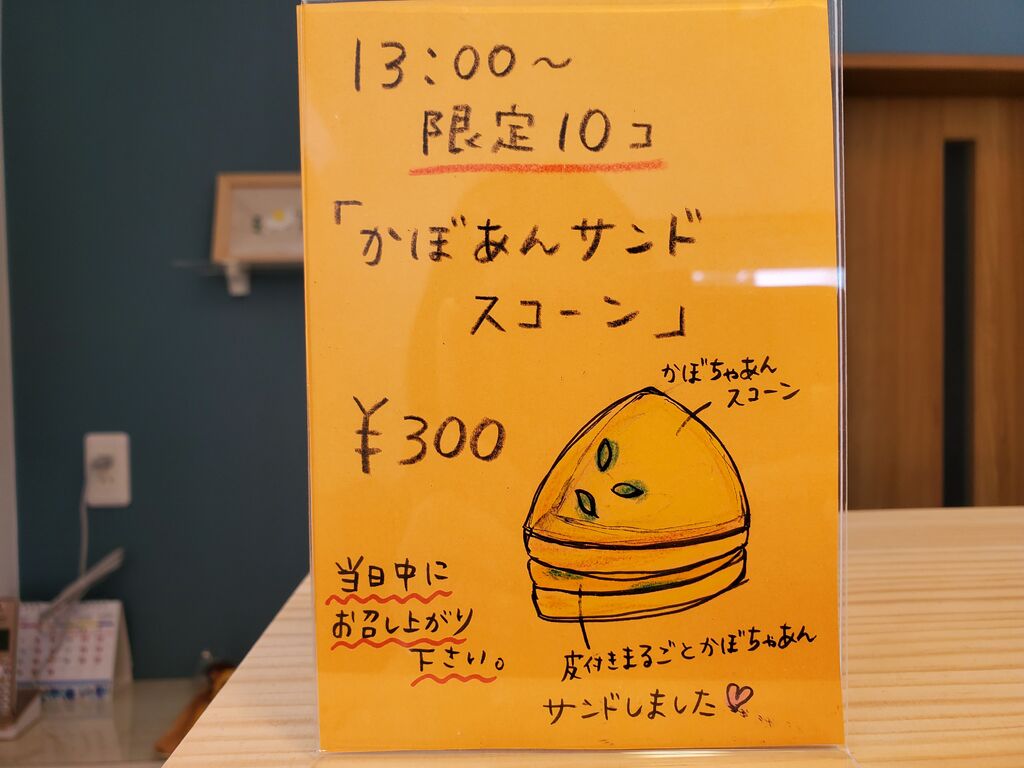 13:00~
限定10コ
「かぼあんサンド
スコーン」
かぼちゃあん
スコーン
¥300
当日中に
お召し上がり
下さい。
皮付きまるごとかぼちゃあん
サンドしました♡